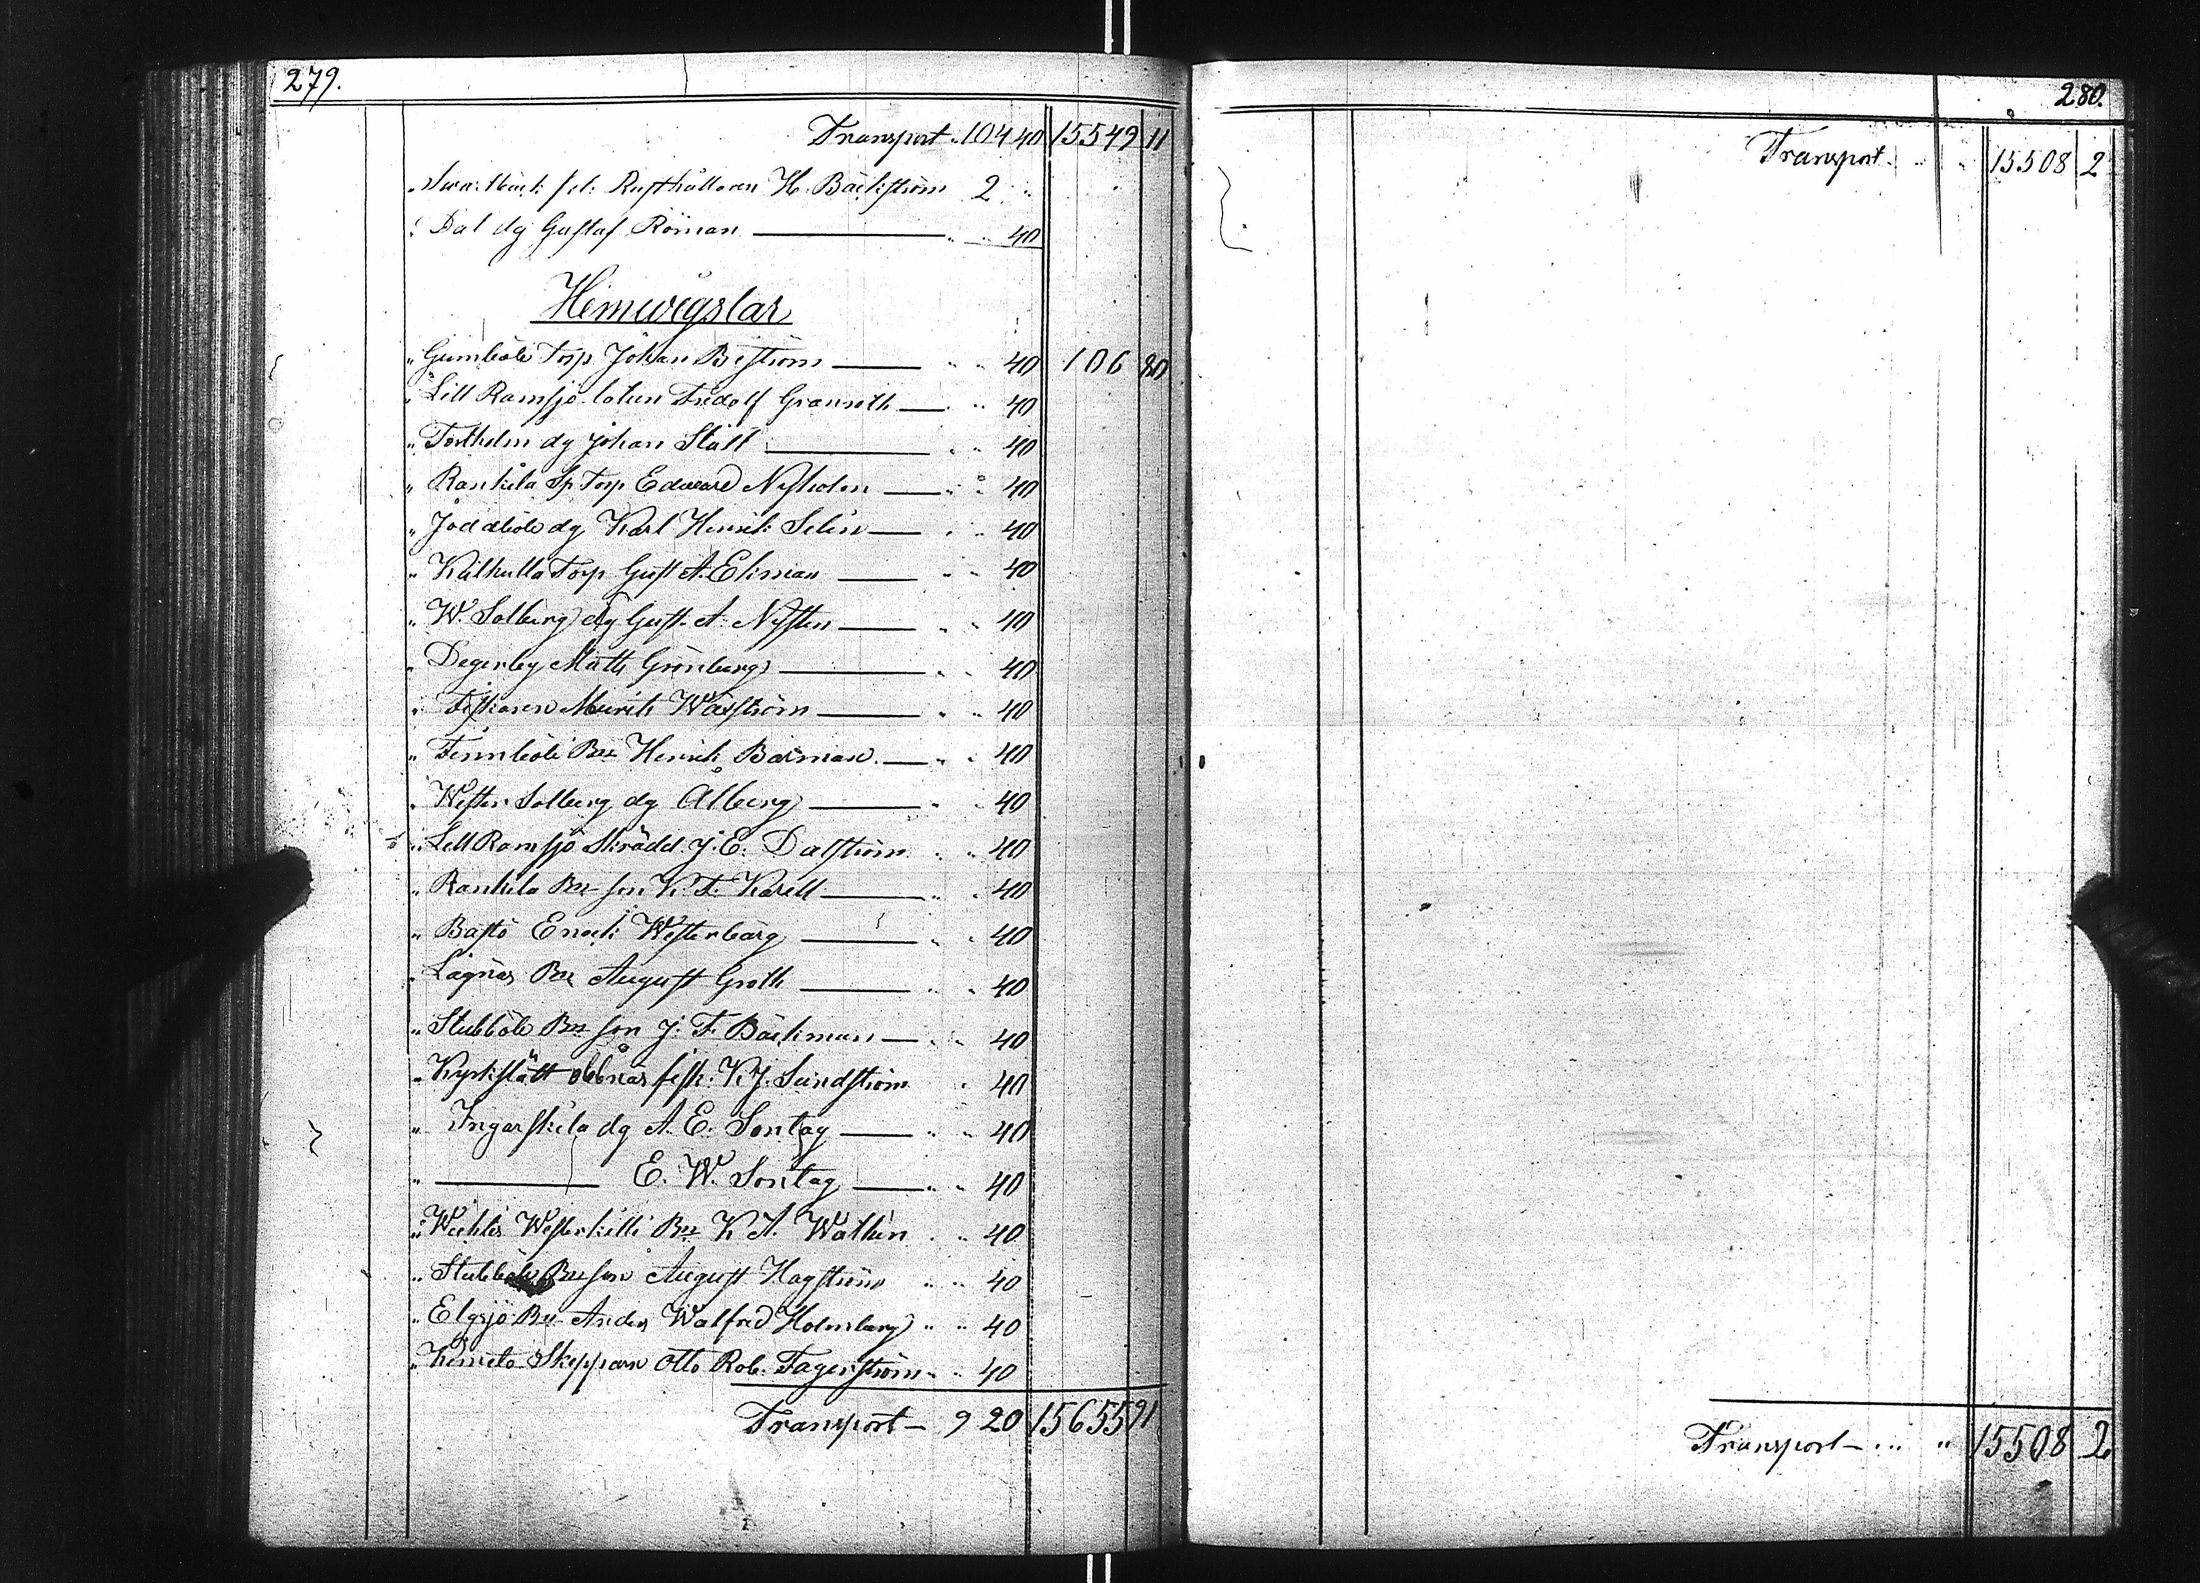 279.
Transport " 104 40 15549 11
" Svartbäck fd. Rusthållaren H. Bäckström 2 "
" Dal dg Gustaf Röman — " " 40
Hemvigslar
" Gumböle Torp Johan Biström — " " 40 106 80
" Lill Ramsjö Fridolf Granroth — " " 40
" Torlholm dg Johan Stått — " " 40
" Rankila Sp Torp Edvard Nyholm — " " 40
" Joddböle dg Karl Henrik Selin — " " 40
" Kälkulla Torp Gust A. Ekman — " " 40
" W. Solberg dg Gust. A. Nysten — " " 40
" Degerby Matts Grönberg — " " 40
" Fiskaren Murik Waxström — " " 40
" Finnböle Bn Henrik Barman — " " 40
" Wester Solberg dg Alberg — " " 40
" Lill Ramsjö Skrädd. J. E. Dalström " " 40
" Rankila Bn son K. F. Karell — " " 40
" Bastö Enock Westerberg — " " 40
" Lågnäs Bn August Groth — " " 40
" Stubböle Bn son J. F. Bäckman — " " 40
" Kyrkslätt Obbnäs fisk. K. J. Sundström " 40
" Ingarskila dg A. E. Sontag — " " 40
" — E. W. Sontag — " " 40
" Westerkulla Bn K A. Wallin " " 40
" Stubböle Bn son August Hagström " " 40
" Elgsjö Bn Anders Walfrid Holmberg " " 40
" Kimito Skepparn Otto Rob. Fagerström " " 40
Transport — 9 20 15655 91
280.
Transport " " 15508 2
Transport — " " 15508 2